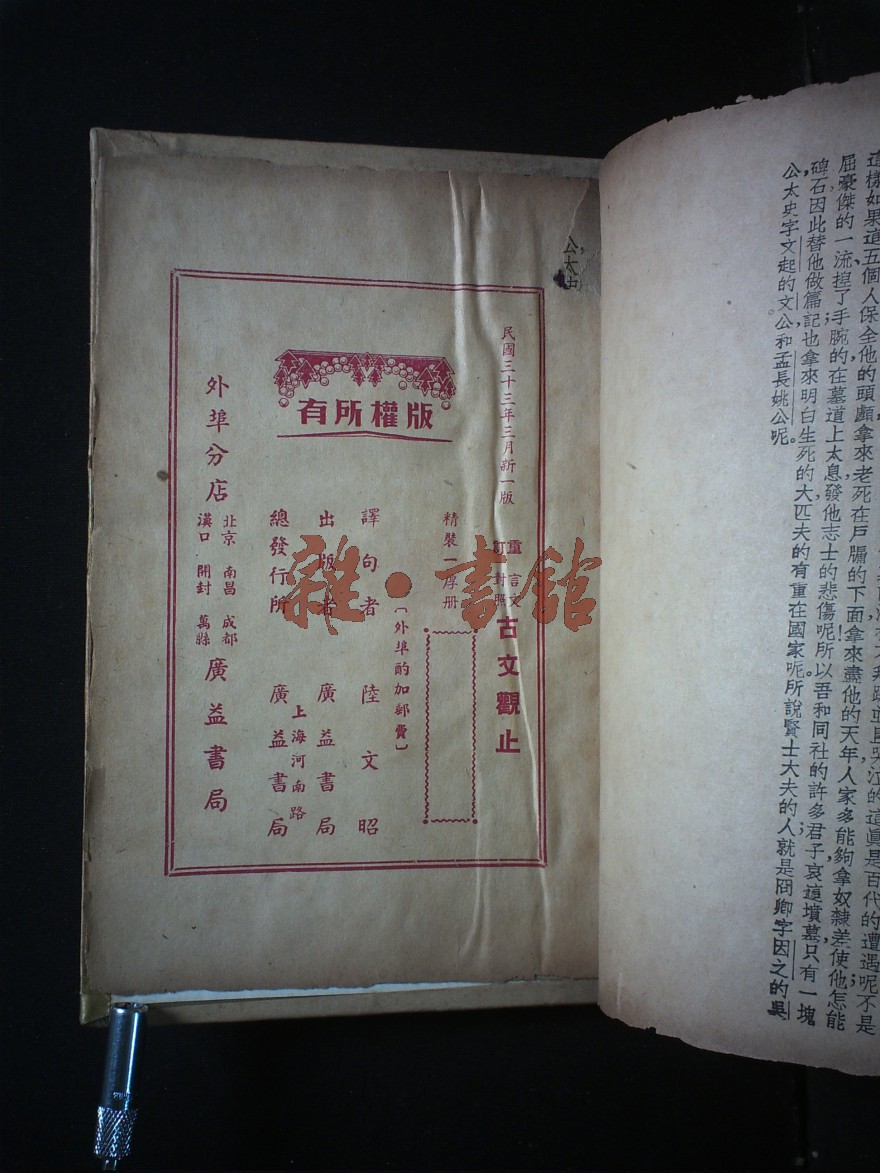 這樣如果這五個人保全他的頭顱拿來老死在戶牖的下面拿來盡他的天年人家多能夠拿奴隸差使他怎能
屈豪傑的一流揑了手腕的在墓道上太息發他志士的悲傷呢所以吾和同社的許多君子哀這墳墓只有一塊
碑石因此替他做篇記也拿來明白生死的大匹夫的有重在國家呢所說賢士大夫的人就是冏卿字因之的吳
公太史字文起的文公和孟長姚公呢。
公太史
民國三十三年三月新一版
重訂
言文對照
古文觀止
精裝一厚册
〔外埠酌加郵費〕
版權所有
譯句者 陸文昭
出版者 廣益書局
上海河南路
總發行所 廣益書局
外埠分店
北京 南昌 成都
漢口 開封 萬縣
廣益書局
雜·書館